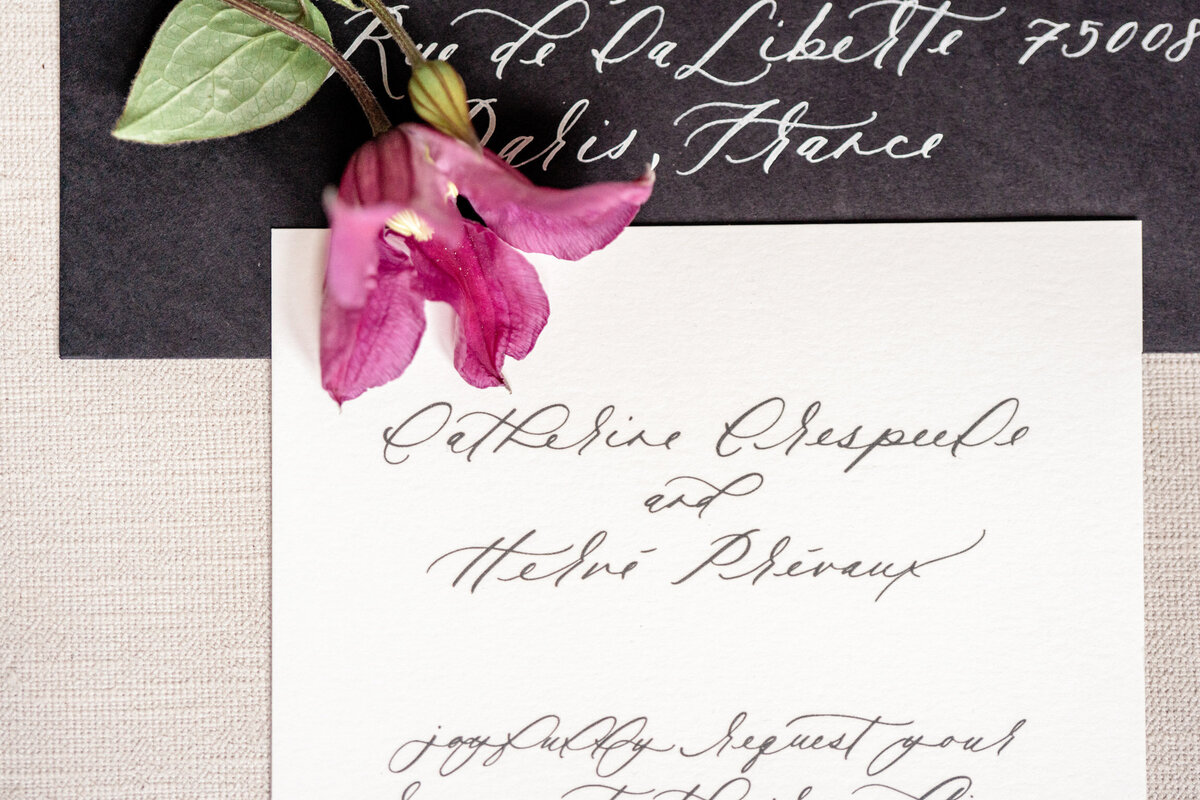 Rue de La Liberte 75008
Paris, France
Catherine Crespeele
and
Hervé Prévaux
joyfully request your